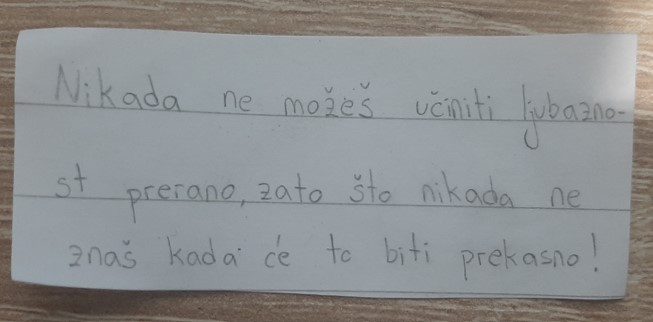 Nikada ne možeš učiniti ljubazno-
st prerano, zato što nikada ne
znaš kada će to biti prekasno!